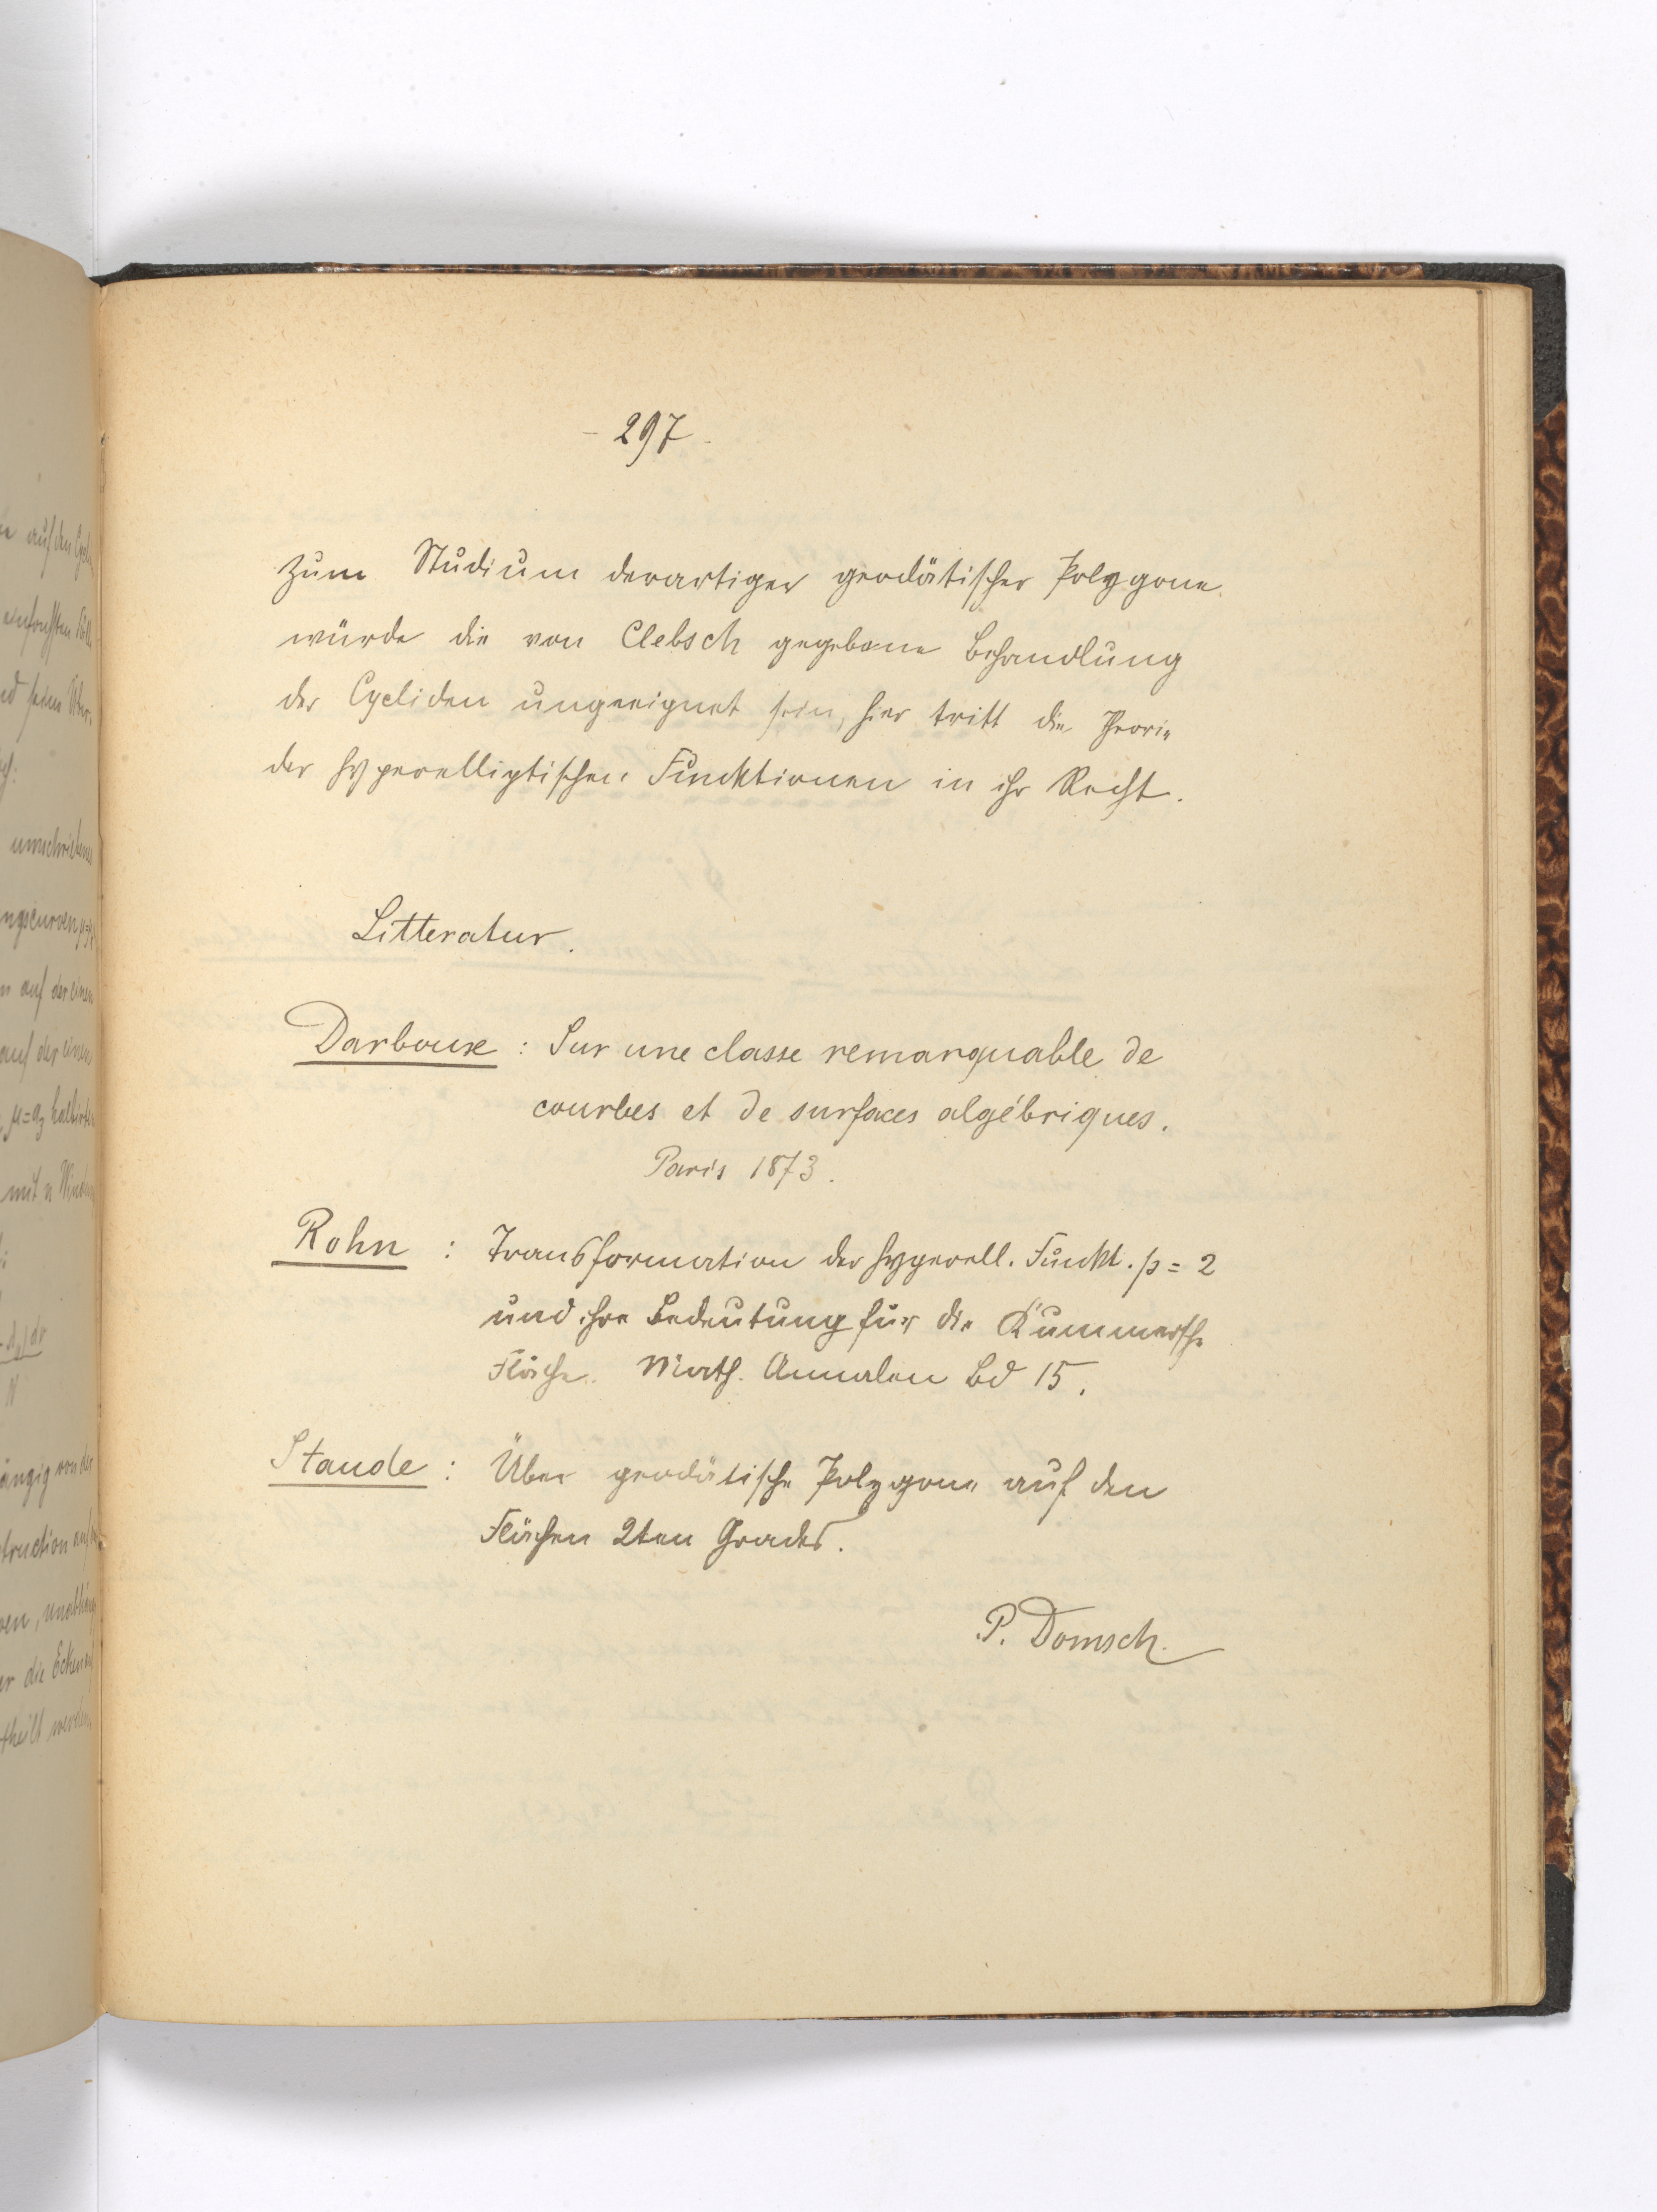 - 297 -
zum Studium derartiger geodätischer Polygone
würde die von Clebsch gegebene Behandlung
der Cycliden ungeeignet sein, hier tritt die Theorie
der hyperelliptischen Funktionen in ihr Recht.
Litteratur.
Darboux : Sur une classe remarquable de
courbes et de surfaces algébriques.
Paris 1873.
Rohn : Transformation der hyperell. Funkt. p = 2
und ihre Bedeutung für die Kummersche
Fläche. Math. Annalen Bd 15.
Staude : Über geodätische Polygone auf den
Flächen 2ten Grades.
P. Domsch.